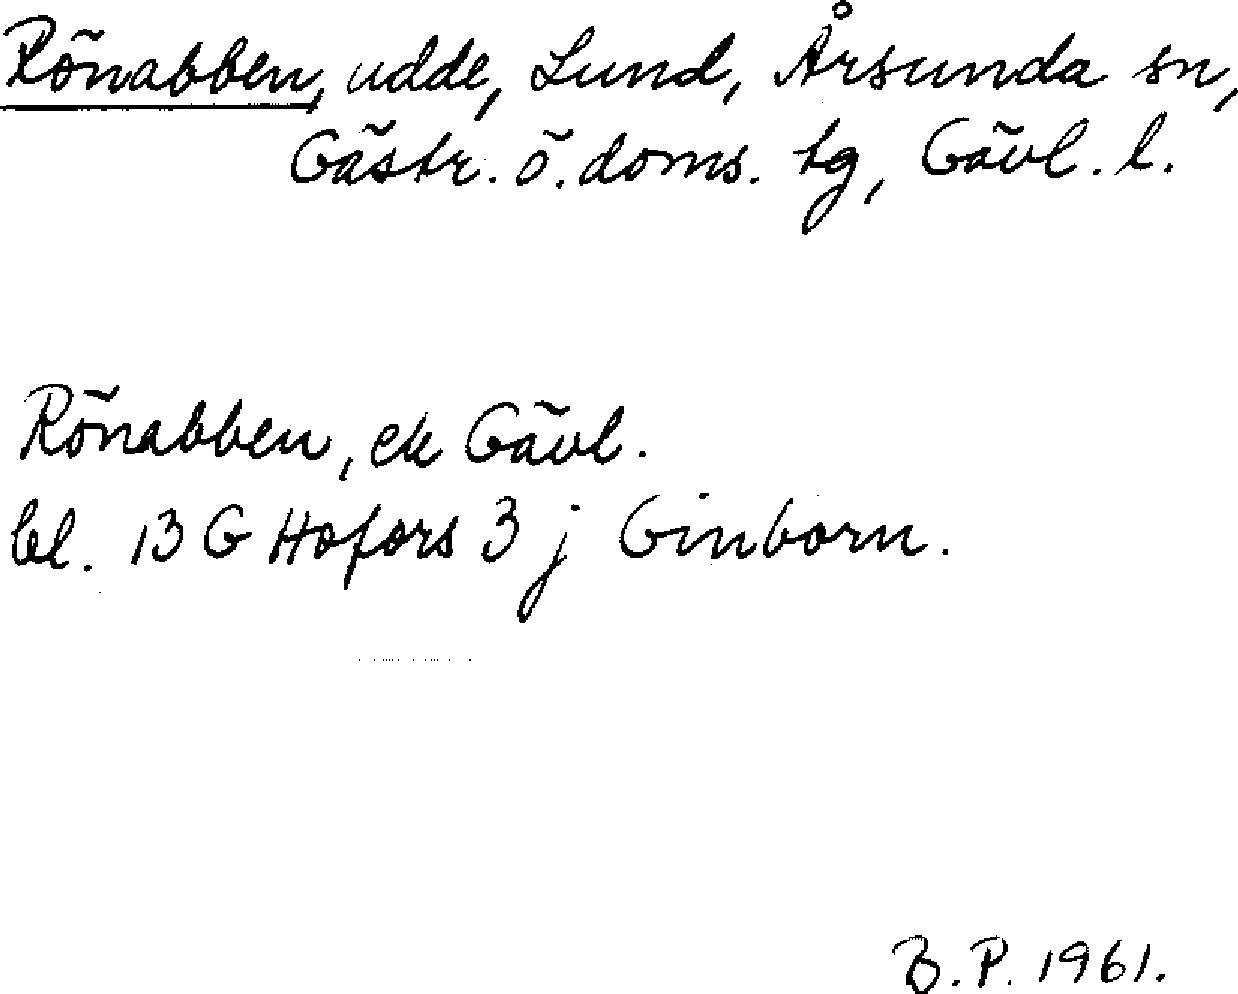 Rönabben, udde, Lund, Årsunda sn,
Gästr. ö. doms. tg, Gävl. l.
Rönabben, ek Gävl.
bl. 13 G Hofors 3 j Ginborn.
B.P. 1961.